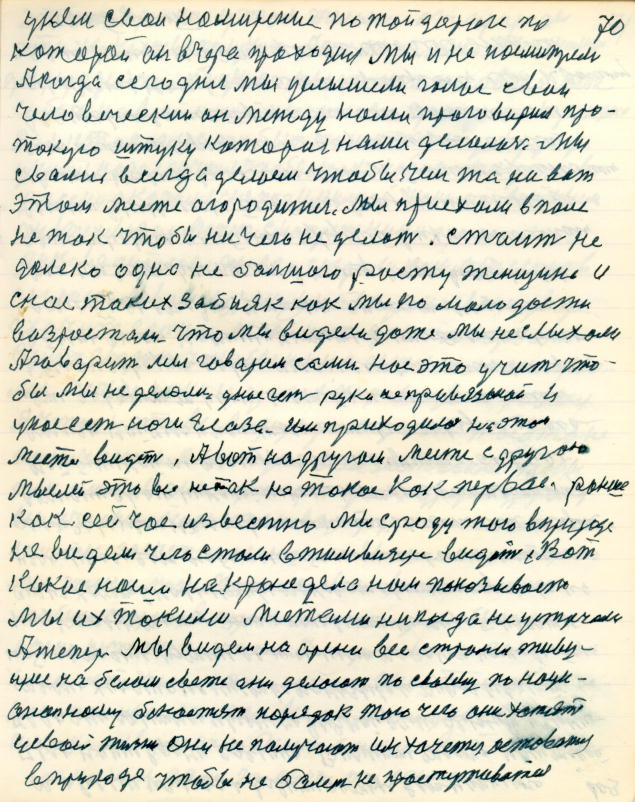 укем свои намирение по той дороги по 70
которой он вчера проходил мы и не посматрели
А когда сегодня мы услышели голос свои
человеческии он между нами проговорил про-
токую штуку которая нами делолась. Мы
сваими всегда делоем чтобы чем та на вот
этом месте огородится. Мы приехали в поле
не так чтобы ни чего не делат. Стаит не
далеко одна не балшого росту женщина и
снае таких забияк как мы по маладости
возростали. что мы видели даже мы не слыхали
А говарит мы говарим сами нас это учит что-
бы мы не делоли у нас ест руки не привязаной и
у нас ест ноги глаза. им приходилос на этом
месте видет, А вот на другом месте с другою
мыслей это все не так не такое как первое. ранше
как сей час известно мы сроду того в природе
не видели чего стали в тиливизире видет. Вот
какие наши на крыше дела нам показывают
мы их такими местами никогда не устречали
А тепер мы видем на арени все страны живу-
щие на белом свете они делают по своему по наци-
оналному богатят порядок того чего они хотят
у своей жизни они не получают им хочется оставатся
в природе чтобы не болет не простуживатся